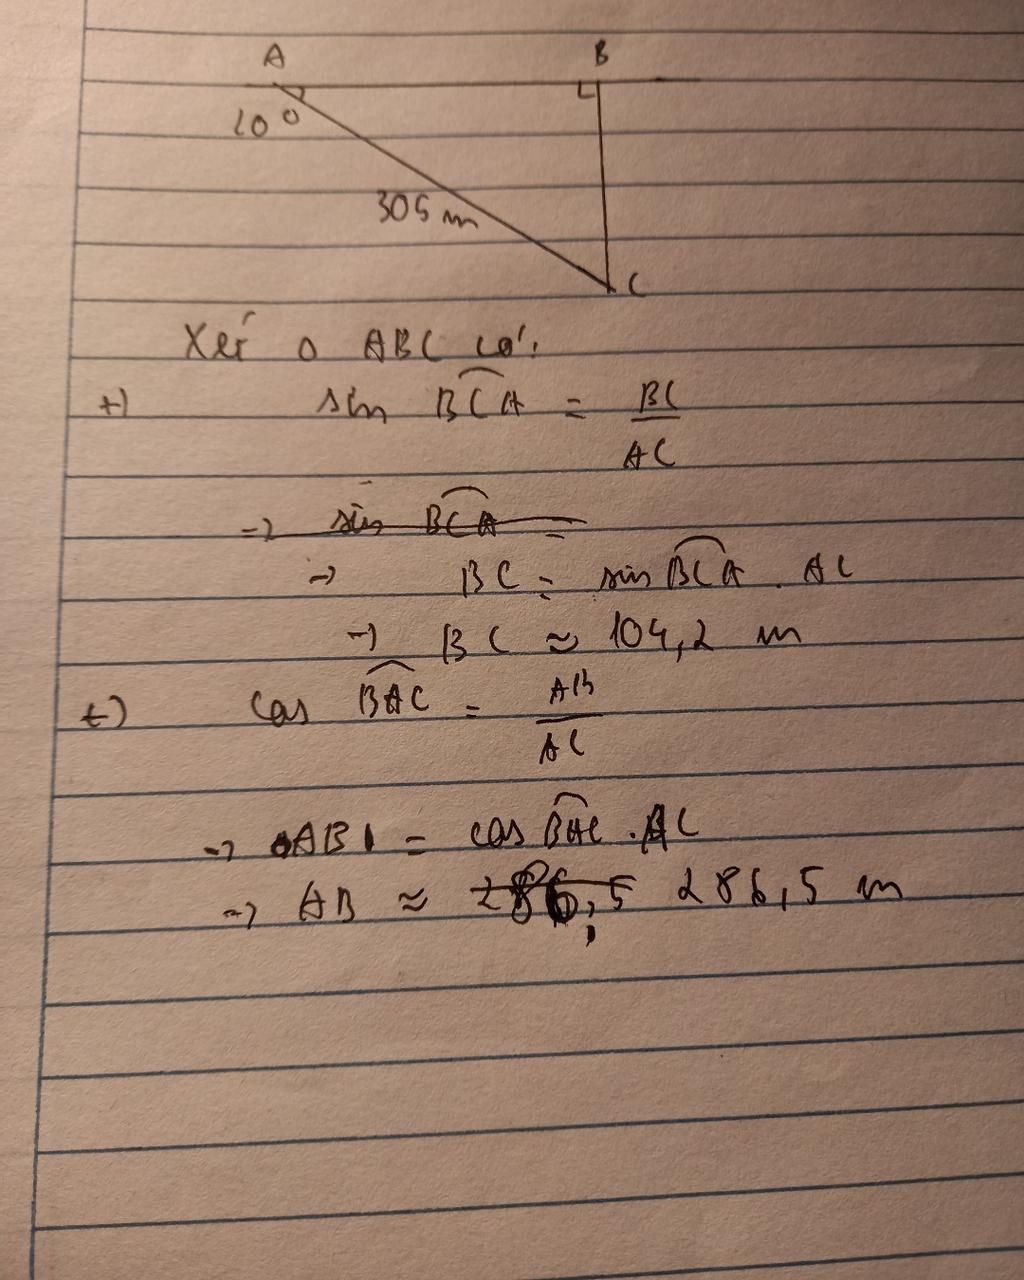 A B
20°
305 m
C
Xét Δ ABC có:
+) sin BCA = BC/AC
→ sin BCA =
→ BC = sin BCA . AC
→ BC ≈ 104,2 m
+) cos BAC = AB/AC
→ AB = cos BAC . AC
→ AB ≈ 286,5 286,5 m